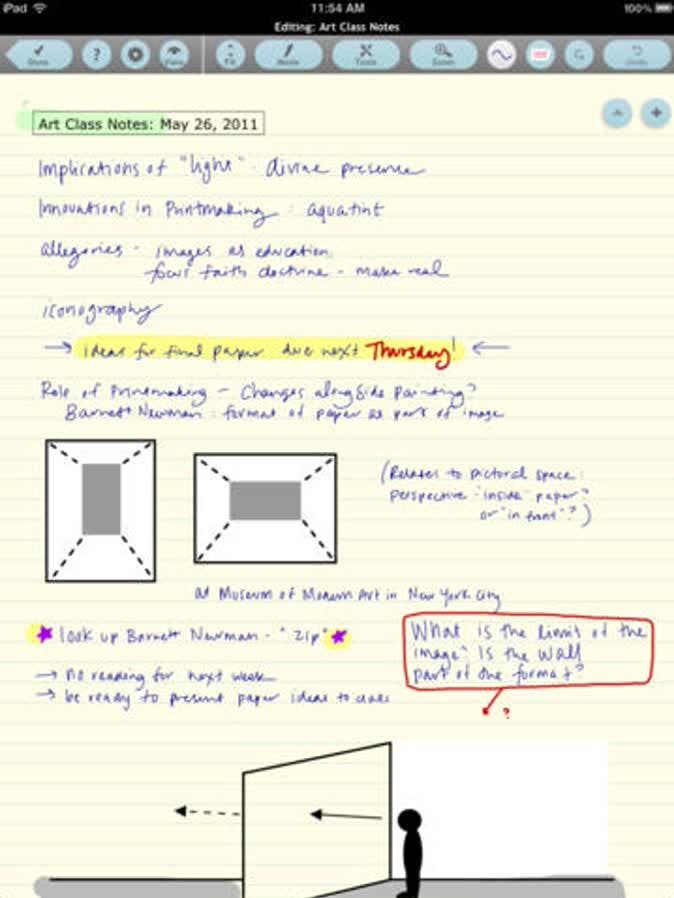 iPad 11:54 AM 100%
Editing: Art Class Notes
Done ? View Fit Mode Tools Zoom Undo
Art Class Notes: May 26, 2011
Implications of "light" - divine presence
Innovations in Printmaking : aquatint
allegories - images as education,
focus faith doctrine - make real
iconography
→ ideas for final paper due next Thursday! ←
Role of Printmaking - Changes alongside painting?
Barnett Newman : format of paper as part of image
(Relates to pictoral space:
perspective "inside" paper?
or "in front"?)
at Museum of Modern Art in New York City
★ look up Barnett Newman - "Zip" ★
What is the limit of the
image? Is the wall
part of the format?
→ no reading for next week
→ be ready to present paper ideas to class
?